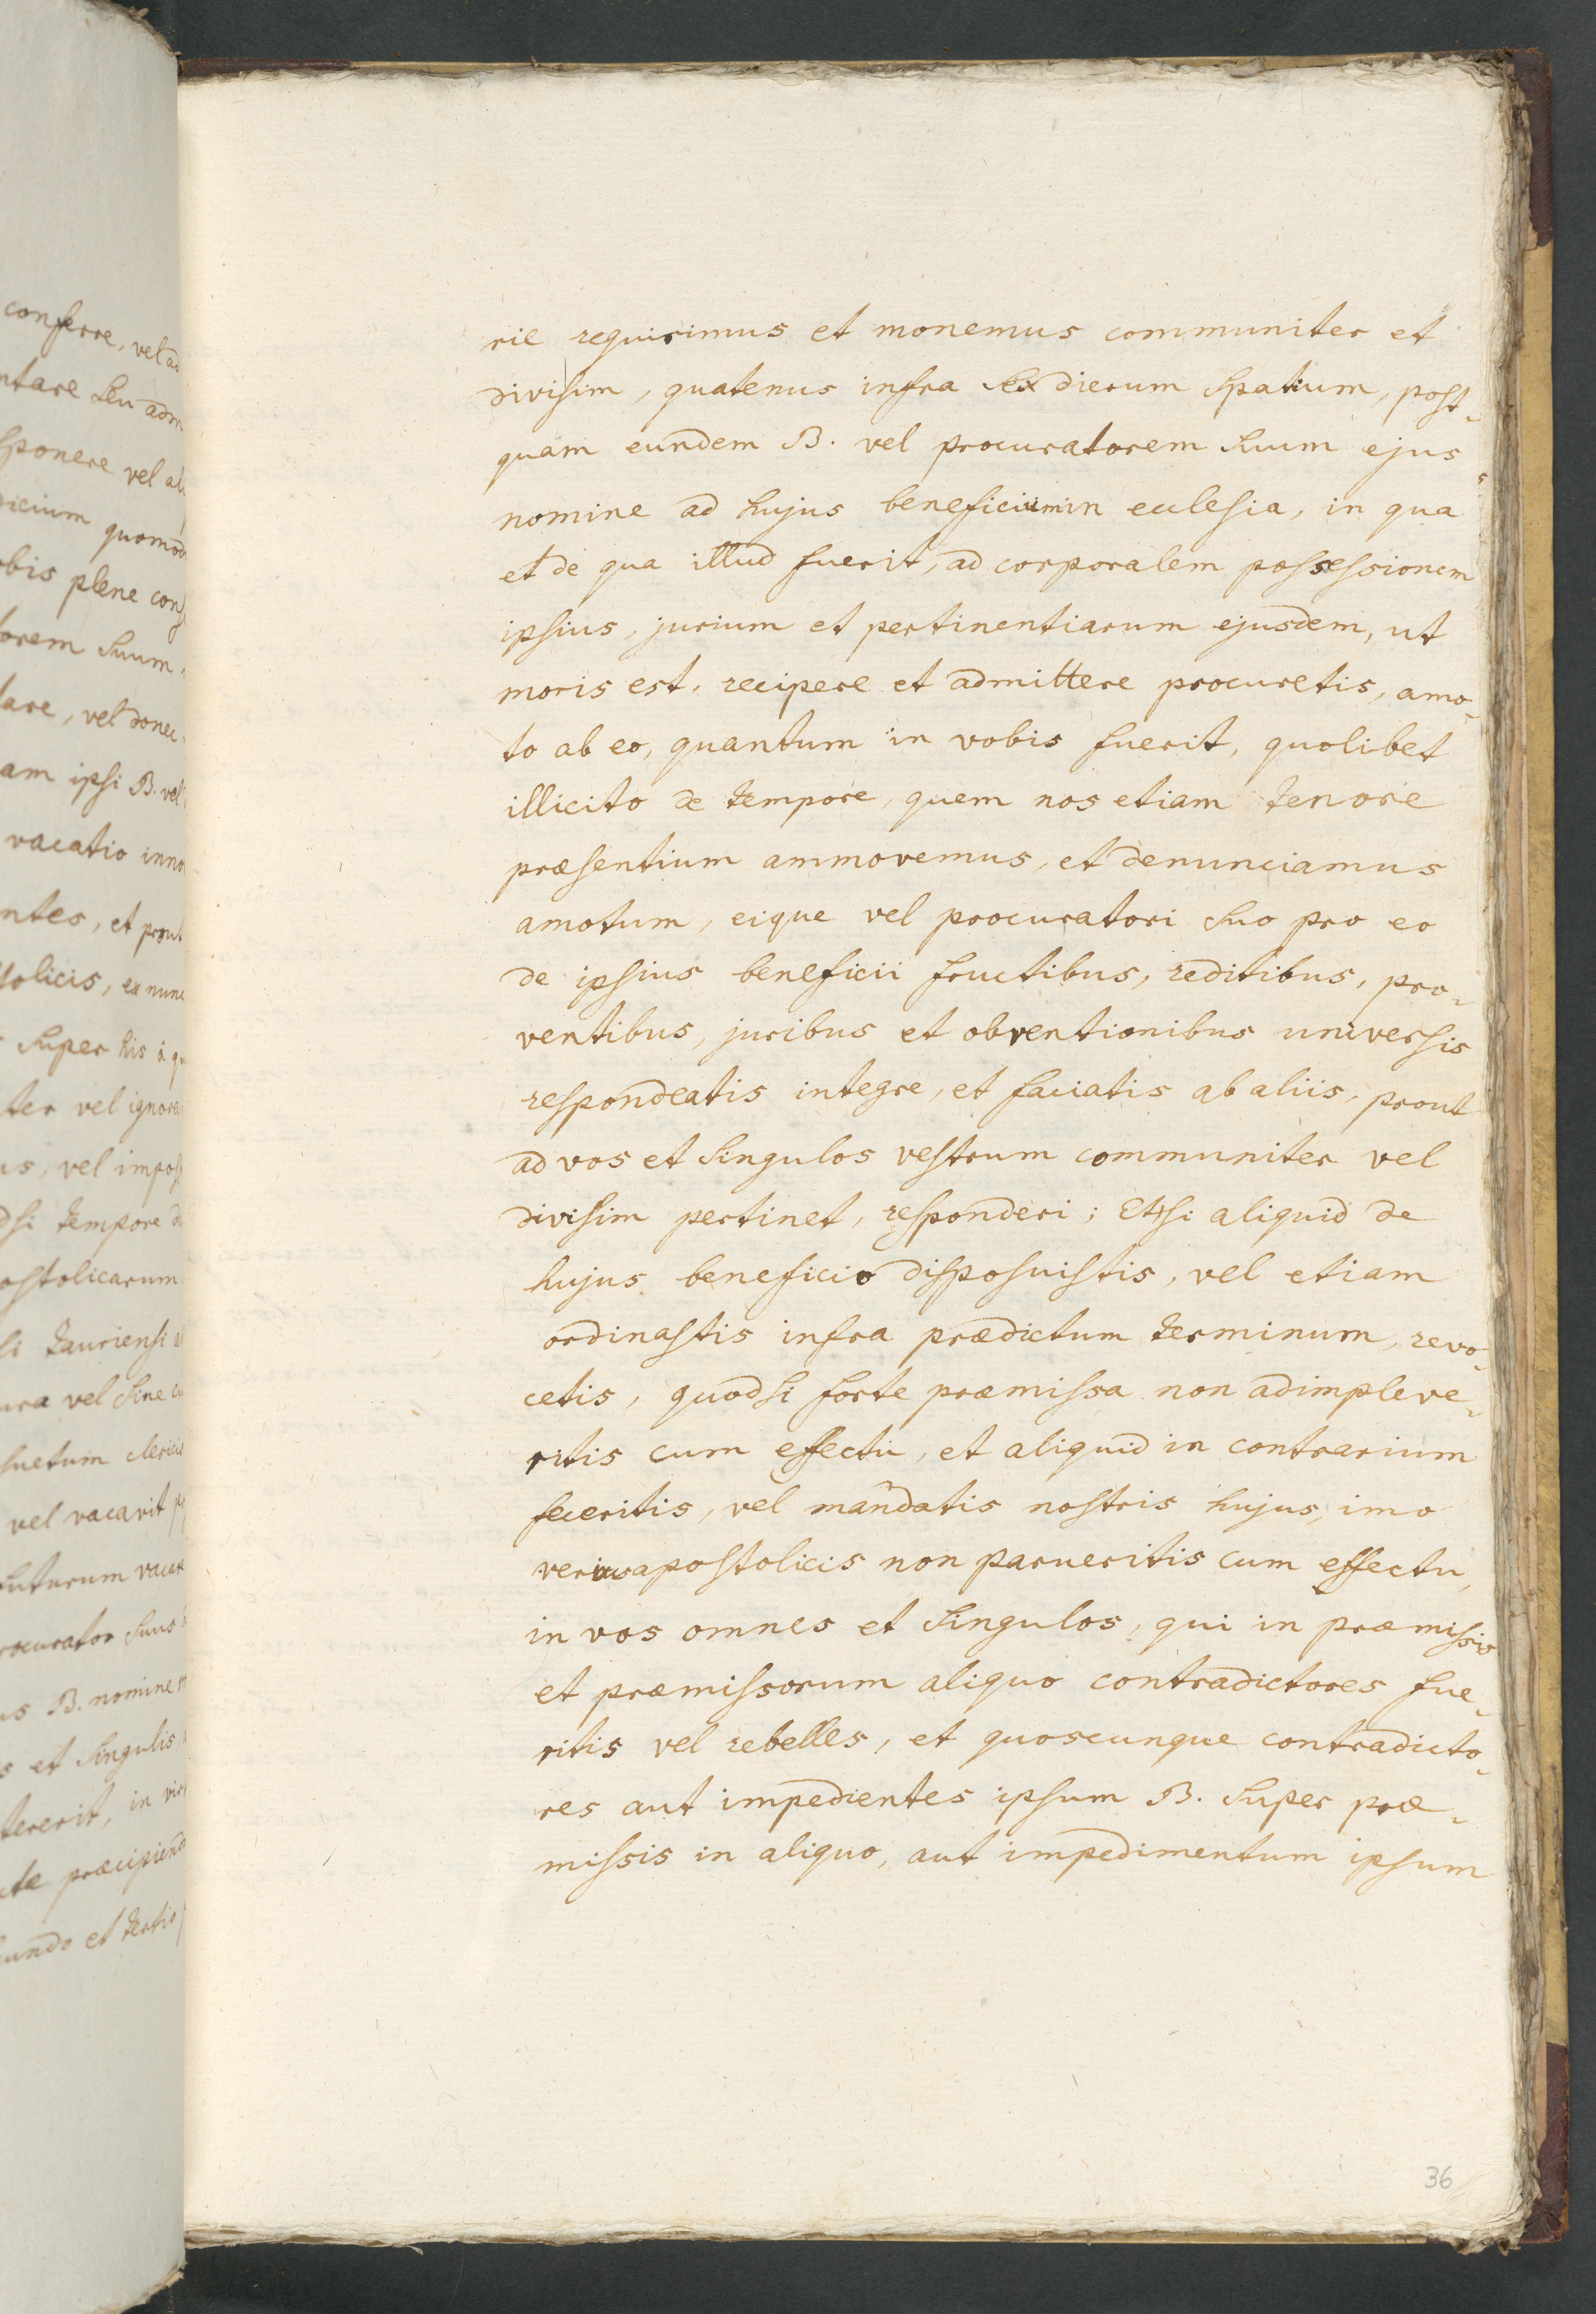 conferre, vel ad
ntare seu adm
sponere vel ali
dicium quomod
obis plene cons
torem suum
tare, vel donec
am ipsi B. vel
vacatio inno
ntes, et prout
stolicis, ex nunc
super his à qu
ter vel ignora
us, vel impos
dsi tempore d
ostolicarum
si tauriensi
ura vel sine cu
suetum clericis
vel vacarit p
futurum vacar
rocurator suus
us B. nomine
s et singulis
tererit, in vir
cte præcipiend
cundo et tertio
rie requirimus et monemus communiter et
divisim, quatenus infra sex dierum spatium, post-
quam eundem B. vel procuratorem suum ejus
nomine ad hujus beneficium in ecclesia, in qua
et de qua illud fuerit, ad corporalem possessionem
ipsius, jurium et pertinentiarum ejusdem, ut
moris est, recipere et admittere procuretis, amo-
to ab eo, quantum in vobis fuerit, quolibet
illicito de tempore, quem nos etiam tenore
præsentium ammovemus, et denunciamus
amotum, eique vel procuratori suo pro eo
de ipsius beneficii fructibus, reditibus, pro-
ventibus, juribus et obventionibus universis
respondeatis integre, et faciatis ab aliis, prout
ad vos et singulos vestrum communiter vel
divisim pertinet, responderi; Etsi aliquid de
hujus beneficio disposuistis, vel etiam
ordinastis infra prædictum terminum, revo-
cetis, quodsi forte præmissa non adimpleve-
ritis cum effectu, et aliquid in contrarium
feceritis, vel mandatis nostris hujus, imo
verius apostolicis non parueritis cum effectu,
in vos omnes et singulos, qui in præmissis
et præmissorum aliquo contradictores fue-
ritis vel rebelles, et quoscunque contradicto-
res aut impedientes ipsum B. super præ-
missis in aliquo, aut impedimentum ipsum
36